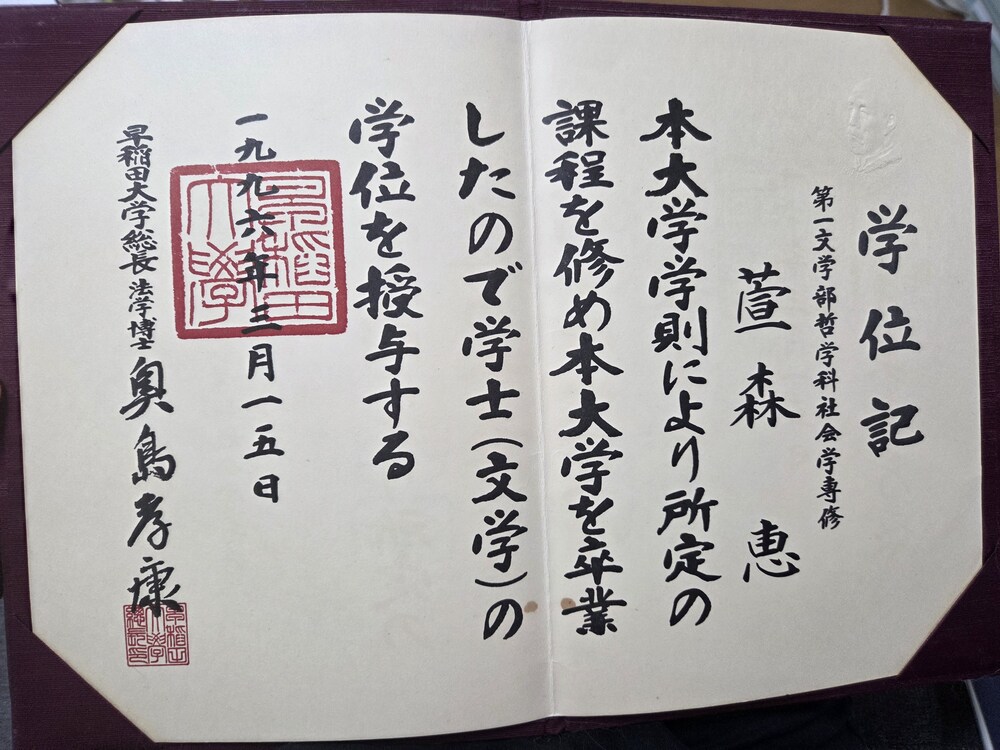 学位記
第一文学部哲学科社会学専修
萱森恵
本大学学則により所定の
課程を修め本大学を卒業
したので学士(文学)の
学位を授与する
一九九六年三月一五日
早稲田大学総長 法学博士 奥島孝康
早稲田大學
早稲田大学総長印